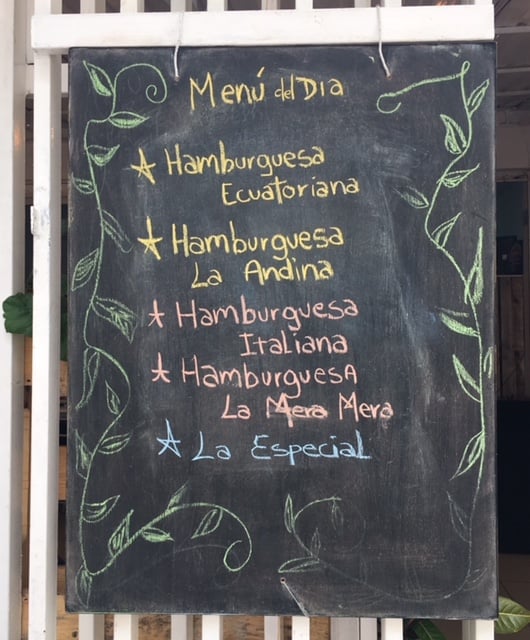 Menú del DIA
Hamburguesa
Ecuatoriana
Hamburguesa
La Andina
Hamburguesa
Italiana
HamburguesA
La Mera Mera
La Especial